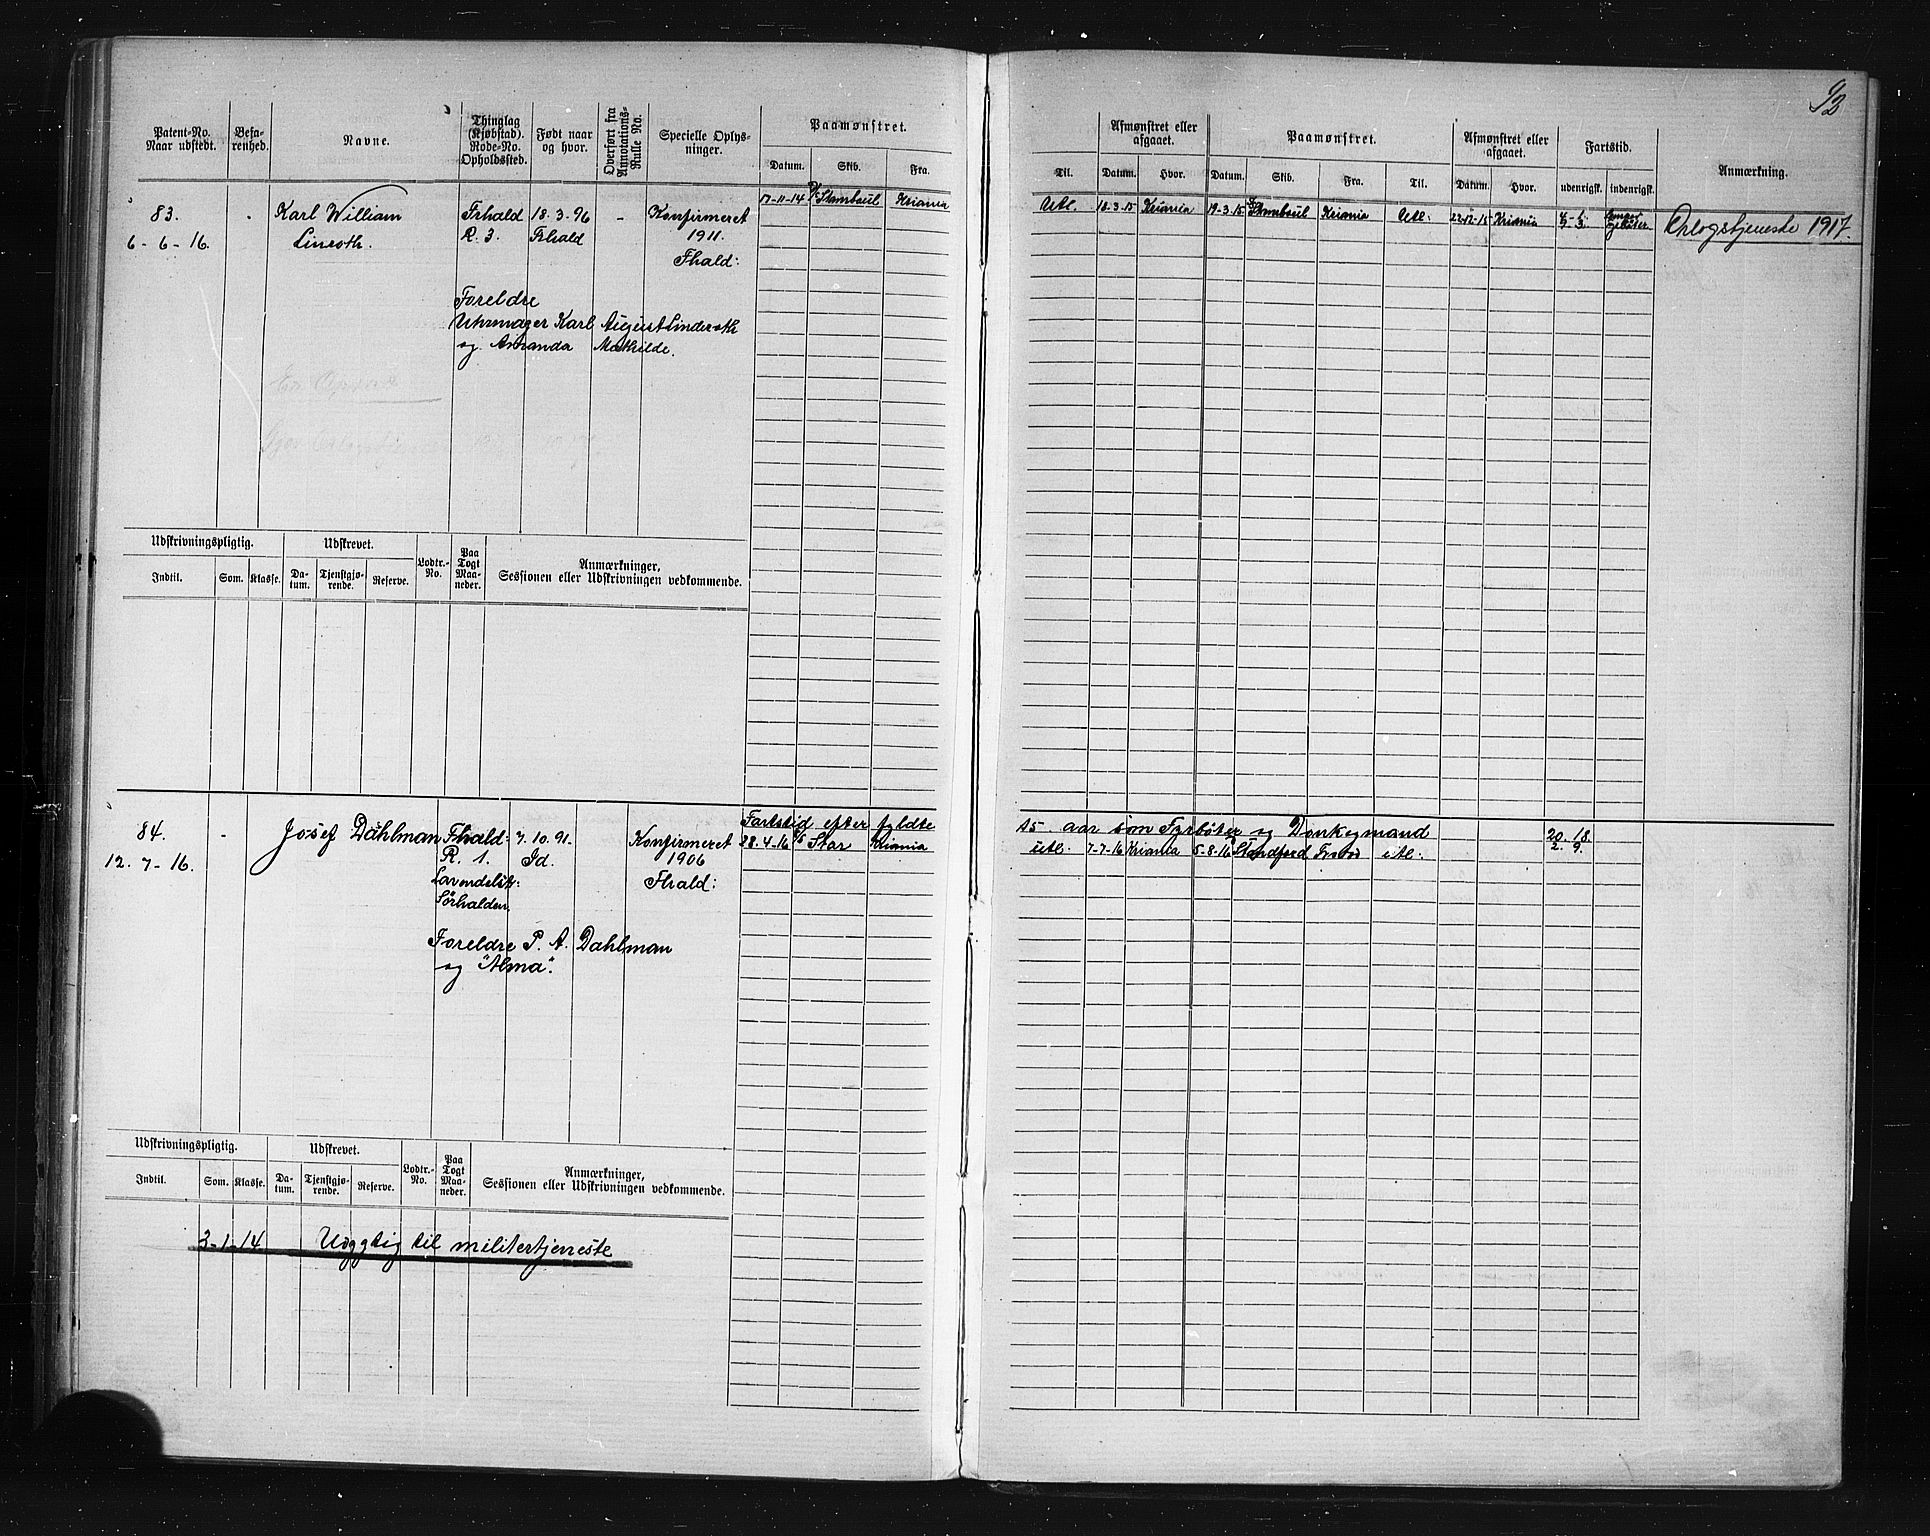 93
Patent-No. Naar udstedt.
Befarenhed.
Navne.
Thinglag (Kjøbstad). Rode-No. Opholdssted.
Født naar og hvor.
Overført fra Annotations-Rulle No.
Specielle Oplysninger.
Paamønstret.
Datum. Skib. Fra.
Til.
Afmønstret eller afgaaet.
Datum. Hvor.
Paamønstret.
Datum. Skib. Fra. Til.
Afmønstret eller afgaaet.
Datum. Hvor.
Fartstid.
udenrigsk. indenrigsk.
Anmærkning.
83.
6-6-16.
Karl William
Linroth.
Frhald
R. 3.
18.3.96
Frhald
-
Konfirmeret
1911.
Fhald:
Foreldre
Uhrmager Karl August Linderoth
og Amanda Mathilde.
17-11-14 D/S Stambuul Kriania
Utl. 18-3-15 Kriania 19-3-15 Stambuul Kriania Utl: 22-12-15 Kriania
Orlogstjeneste 1917.
Udskrivningspligtig.
Indtil. Som. Klasse.
Udskrevet.
Datum. Tjenstgjørende. Reserve.
Lodtr.-No.
Paa Togt Maaneder.
Anmærkninger,
Sessionen eller Udskrivningen vedkommende.
84.
12.-7-16.
-
Josef Dahlman
Fhald:
R. 1.
Lavendelstr:
Sørhalden.
7.10.91.
Id.
Konfirmeret
1906
Fhald:
Foreldre P. A. Dahlman
og "Alma".
Fartstid efter fyldte 15 aar som Fyrbøter og Donkeymand 20. 18.
28.4-16 D/S Star Kriania utl. 7-7-16 Kriania 5-8-16 Standford utl: 2. 9.
Udskrivningspligtig.
Indtil. Som. Klasse.
Udskrevet.
Datum. Tjenstgjørende. Reserve.
Lodtr.-No.
Paa Togt Maaneder.
Anmærkninger,
Sessionen eller Udskrivningen vedkommende.
3-1-14 Udygtig til militertjeneste